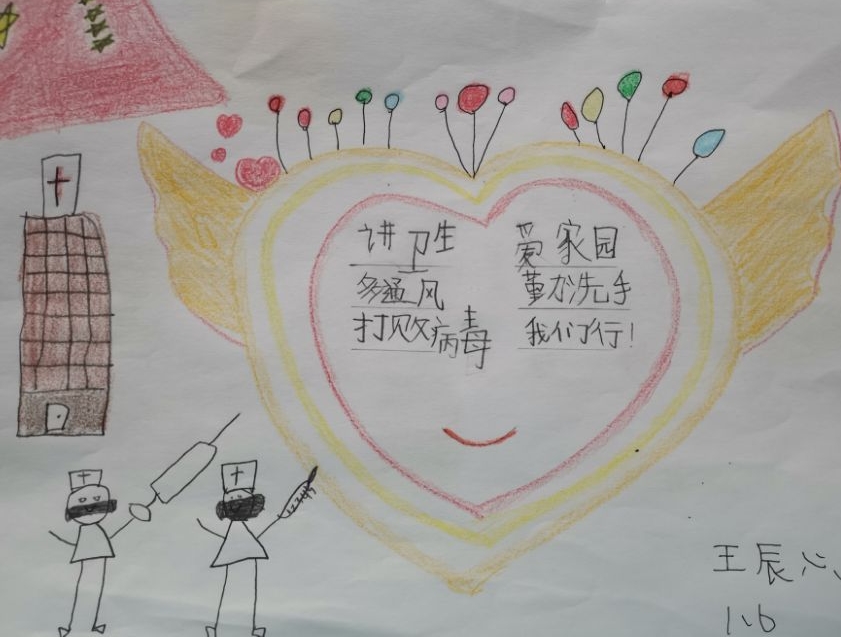 讲卫生 爱家园
多通风 勤洗手
打败病毒 我们行!
王辰心
1.6